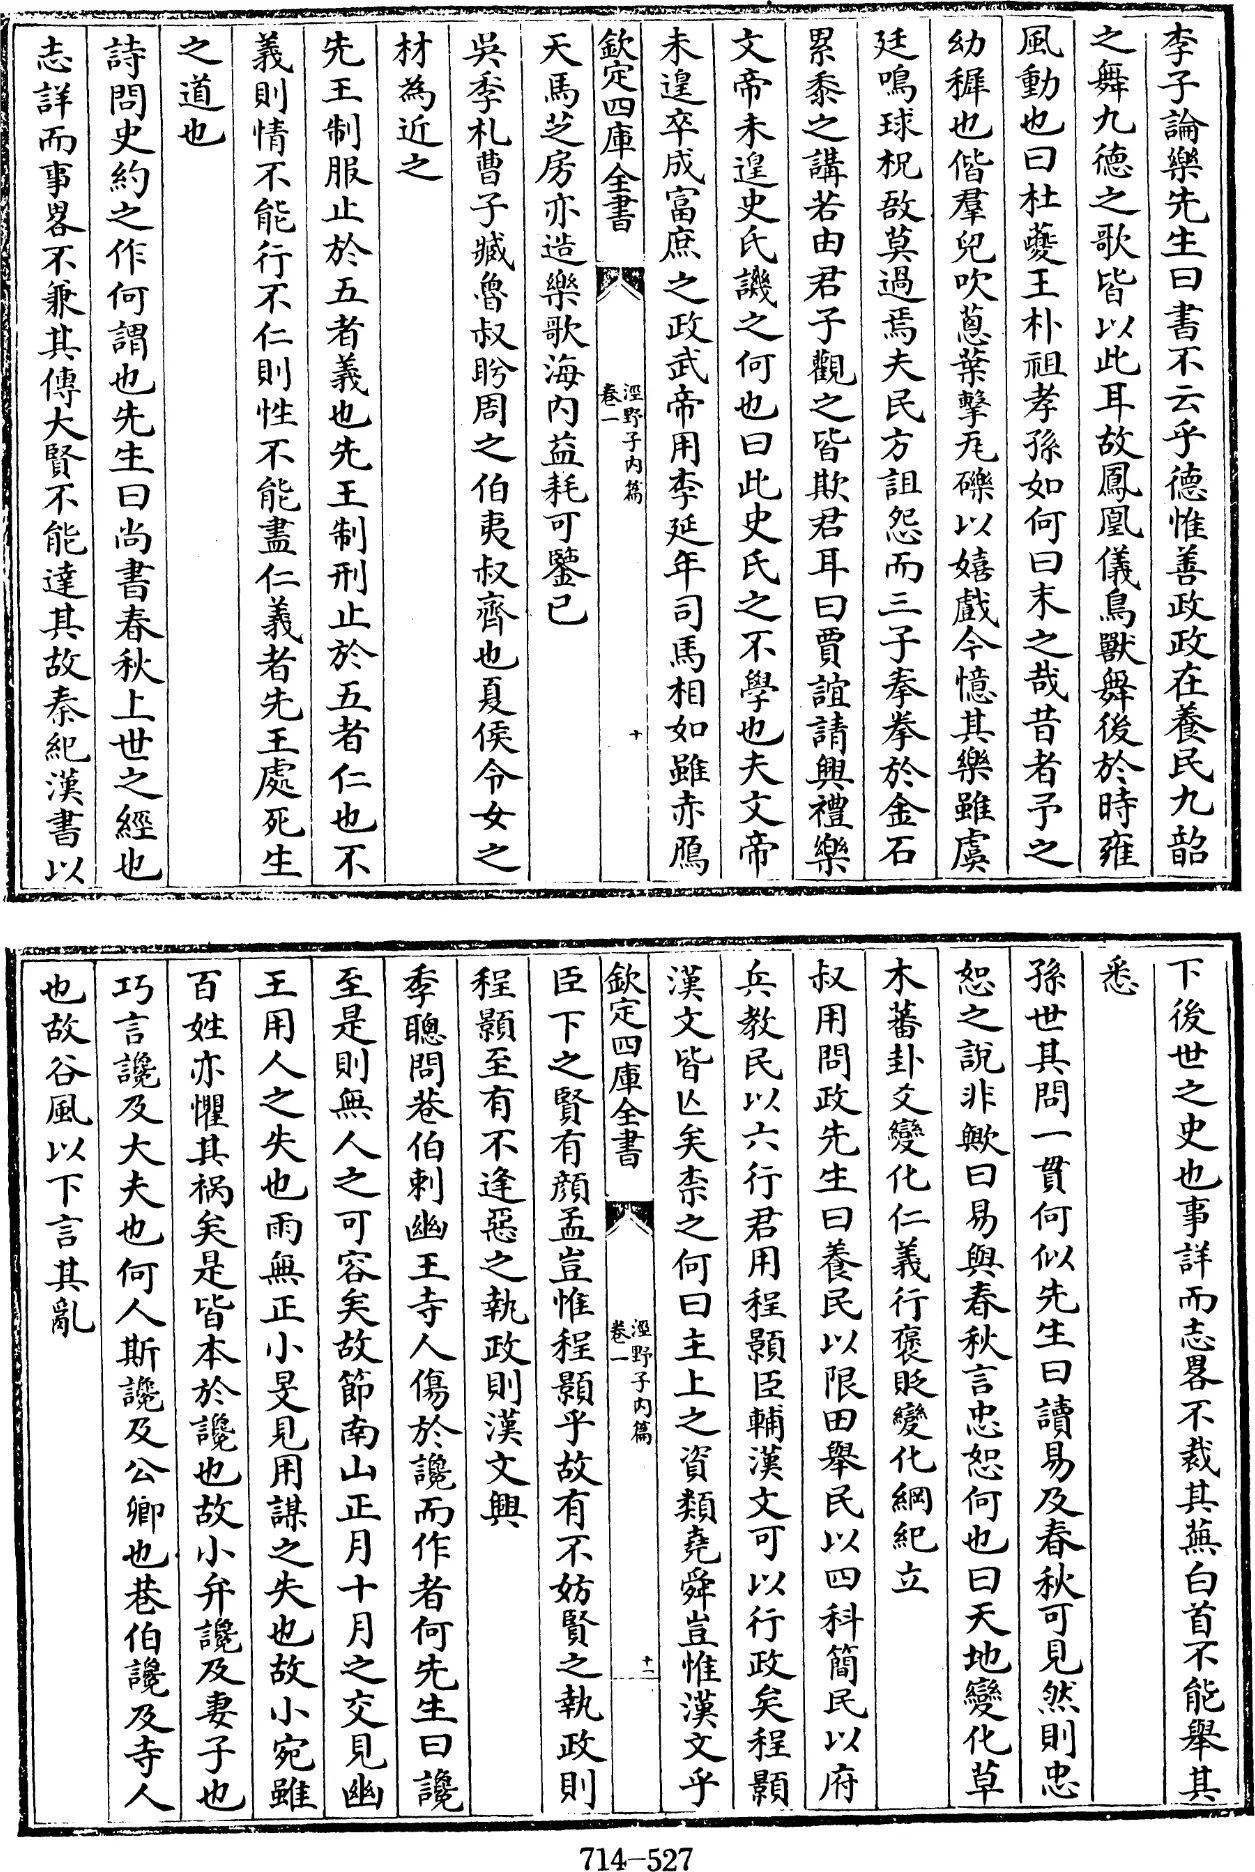 李子論樂先生曰書不云乎德惟善政政在養民九韶
之舞九德之歌皆以此耳故鳳凰儀鳥獸舞後於時雍
風動也曰杜夔王朴祖孝孫如何曰末之哉昔者予之
幼穉也偕羣兒吹葱葉擊瓦礫以嬉戲今憶其樂雖虞
廷鳴球柷敔莫過焉夫民方詛怨而三子拳拳於金石
累黍之講若由君子觀之皆欺君耳曰賈誼請興禮樂
文帝未遑史氏譏之何也曰此史氏之不學也夫文帝
未遑卒成富庶之政武帝用李延年司馬相如雖赤鴈
欽定四庫全書
涇野子内篇
卷一
十
天馬芝房亦造樂歌海内益耗可鑒已
吳季札曹子臧魯叔肸周之伯夷叔齊也夏侯令女之
材為近之
先王制服止於五者義也先王制刑止於五者仁也不
義則情不能行不仁則性不能盡仁義者先王處死生
之道也
詩問史約之作何謂也先生曰尚書春秋上世之經也
志詳而事畧不兼其傳大賢不能達其故秦紀漢書以
下後世之史也事詳而志畧不裁其蕪白首不能舉其
悉
孫世其問一貫何似先生曰讀易及春秋可見然則忠
恕之說非歟曰易與春秋言忠恕何也曰天地變化草
木蕃卦爻變化仁義行褒貶變化綱紀立
叔用問政先生曰養民以限田舉民以四科簡民以府
兵教民以六行君用程顥臣輔漢文可以行政矣程顥
漢文皆亾矣柰之何曰主上之資類堯舜豈惟漢文乎
欽定四庫全書
涇野子内篇
卷一
十一
臣下之賢有顔孟豈惟程顥乎故有不妨賢之執政則
程顥至有不逢惡之執政則漢文興
季聰問巷伯刺幽王寺人傷於讒而作者何先生曰讒
至是則無人之可容矣故節南山正月十月之交見幽
王用人之失也雨無正小旻見用謀之失也故小宛雖
百姓亦懼其禍矣是皆本於讒也故小弁讒及妻子也
巧言讒及大夫也何人斯讒及公卿也巷伯讒及寺人
也故谷風以下言其亂
714-527